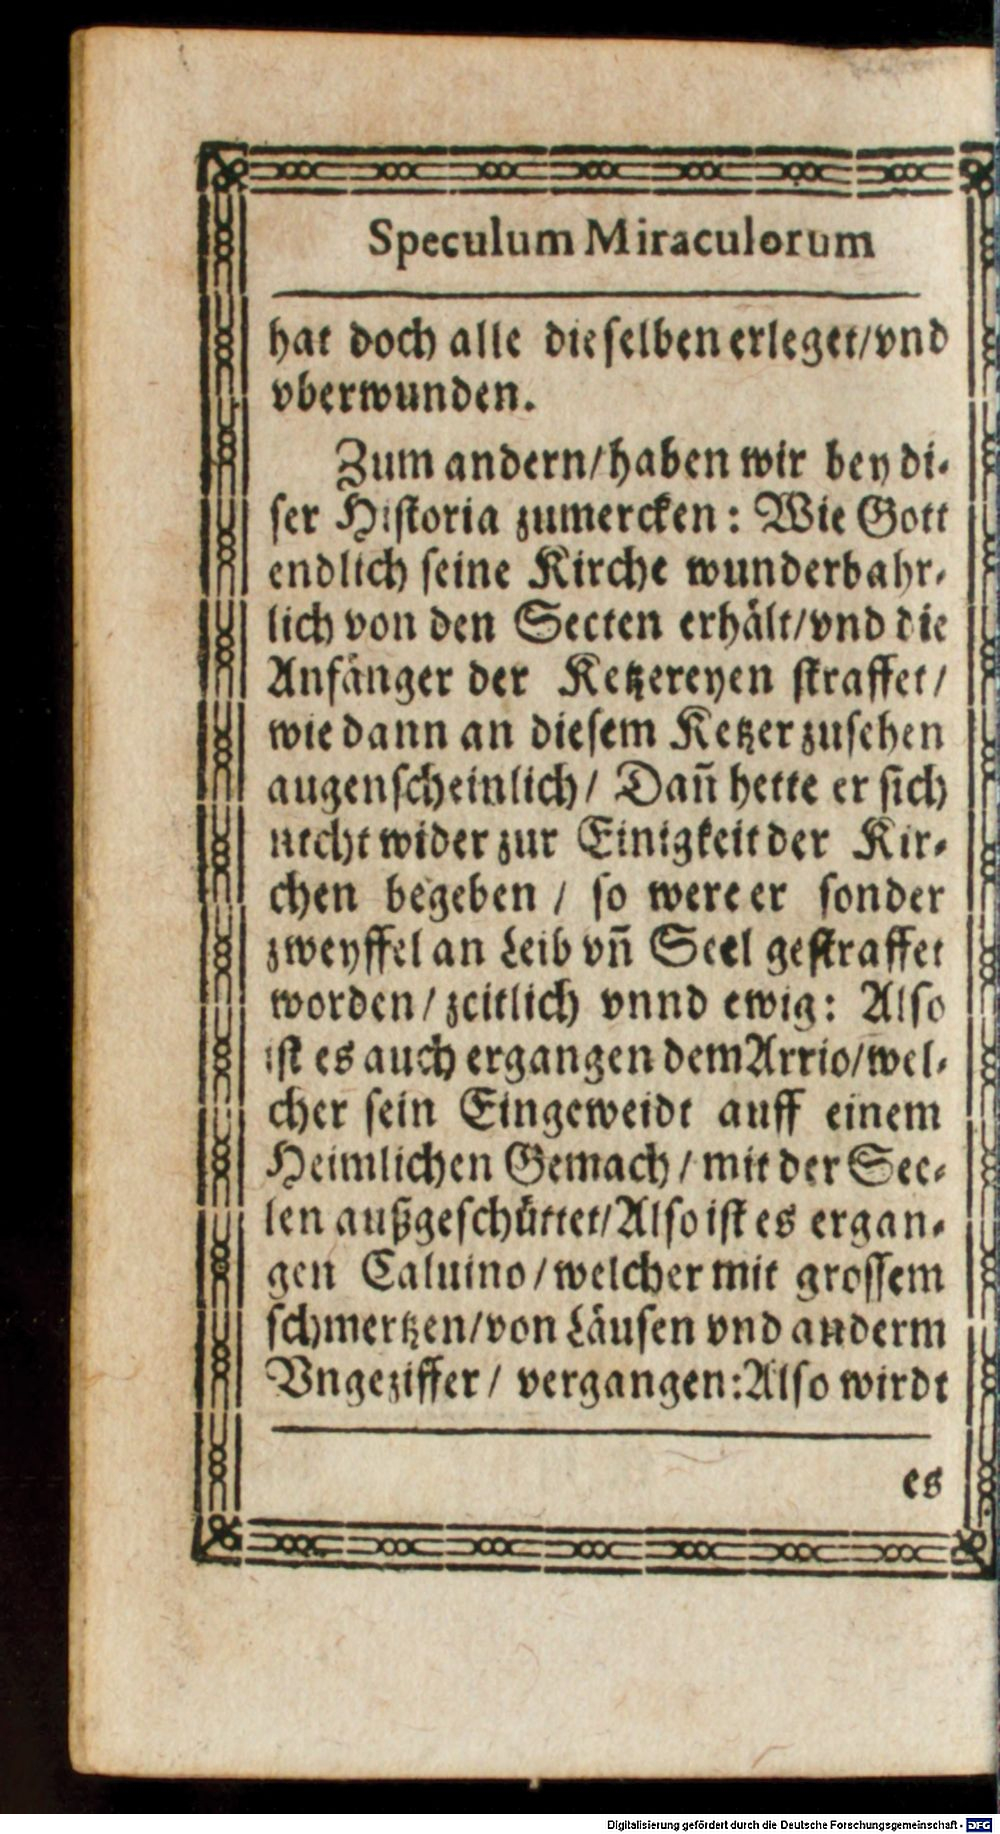 Speculum Miraculorum
hat doch alle dieselben erleget/vnd
vberwunden.
Zum andern/haben wir bey di-
ser Historia zumercken: Wie Gott
endlich seine Kirche wunderbahr-
lich von den Secten erhält/vnd die
Anfänger der Ketzereyen straffet/
wie dann an diesem Ketzer zusehen
augenscheinlich/ Dañ hette er sich
nicht wider zur Einigkeit der Kir-
chen begeben / so were er sonder
zweyffel an Leib vñ Seel gestraffet
worden/zeitlich vnnd ewig: Also
ist es auch ergangen dem Arrio/wel-
cher sein Eingeweidt auff einem
Heimlichen Gemach/mit der See-
len außgeschüttet/Also ist es ergan-
gen Caluino/welcher mit grossem
schmertzen/von Läusen vnd anderm
Vngeziffer/ vergangen:Also wirdt
es
Digitalisierung gefördert durch die Deutsche Forschungsgemeinschaft - DFG